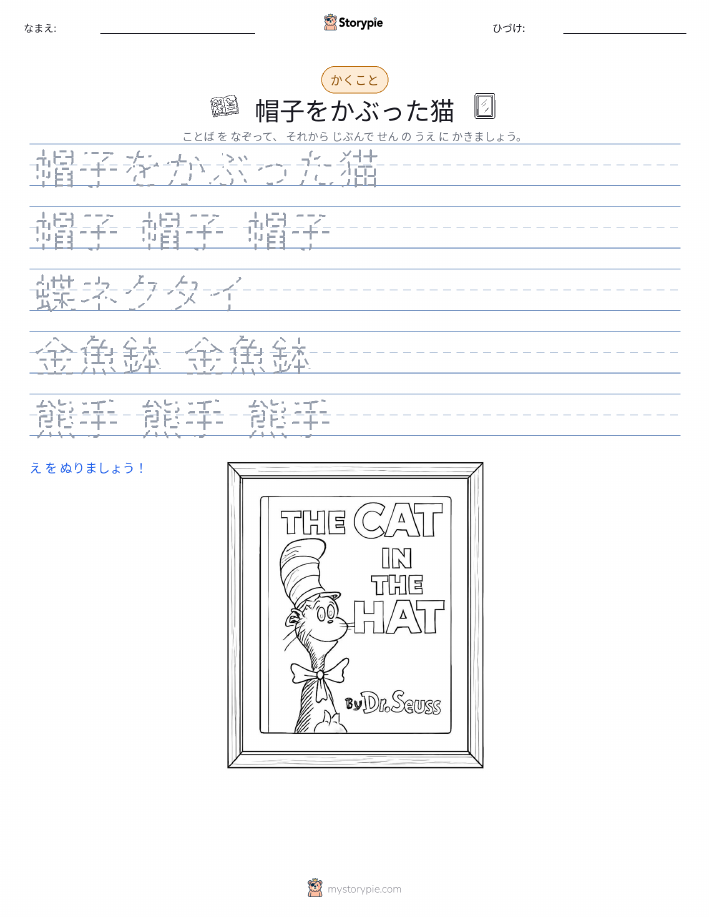 なまえ:
Storypie
ひづけ:
かくこと
帽子をかぶった猫
ことば を なぞって、 それから じぶんで せん の うえ に かきましょう。
帽子をかぶった猫
帽子 帽子 帽子
蝶ネクタイ
金魚鉢 金魚鉢
熊手 熊手 熊手
え を ぬりましょう！
THE CAT
IN
THE
HAT
By Dr. Seuss
mystorypie.com